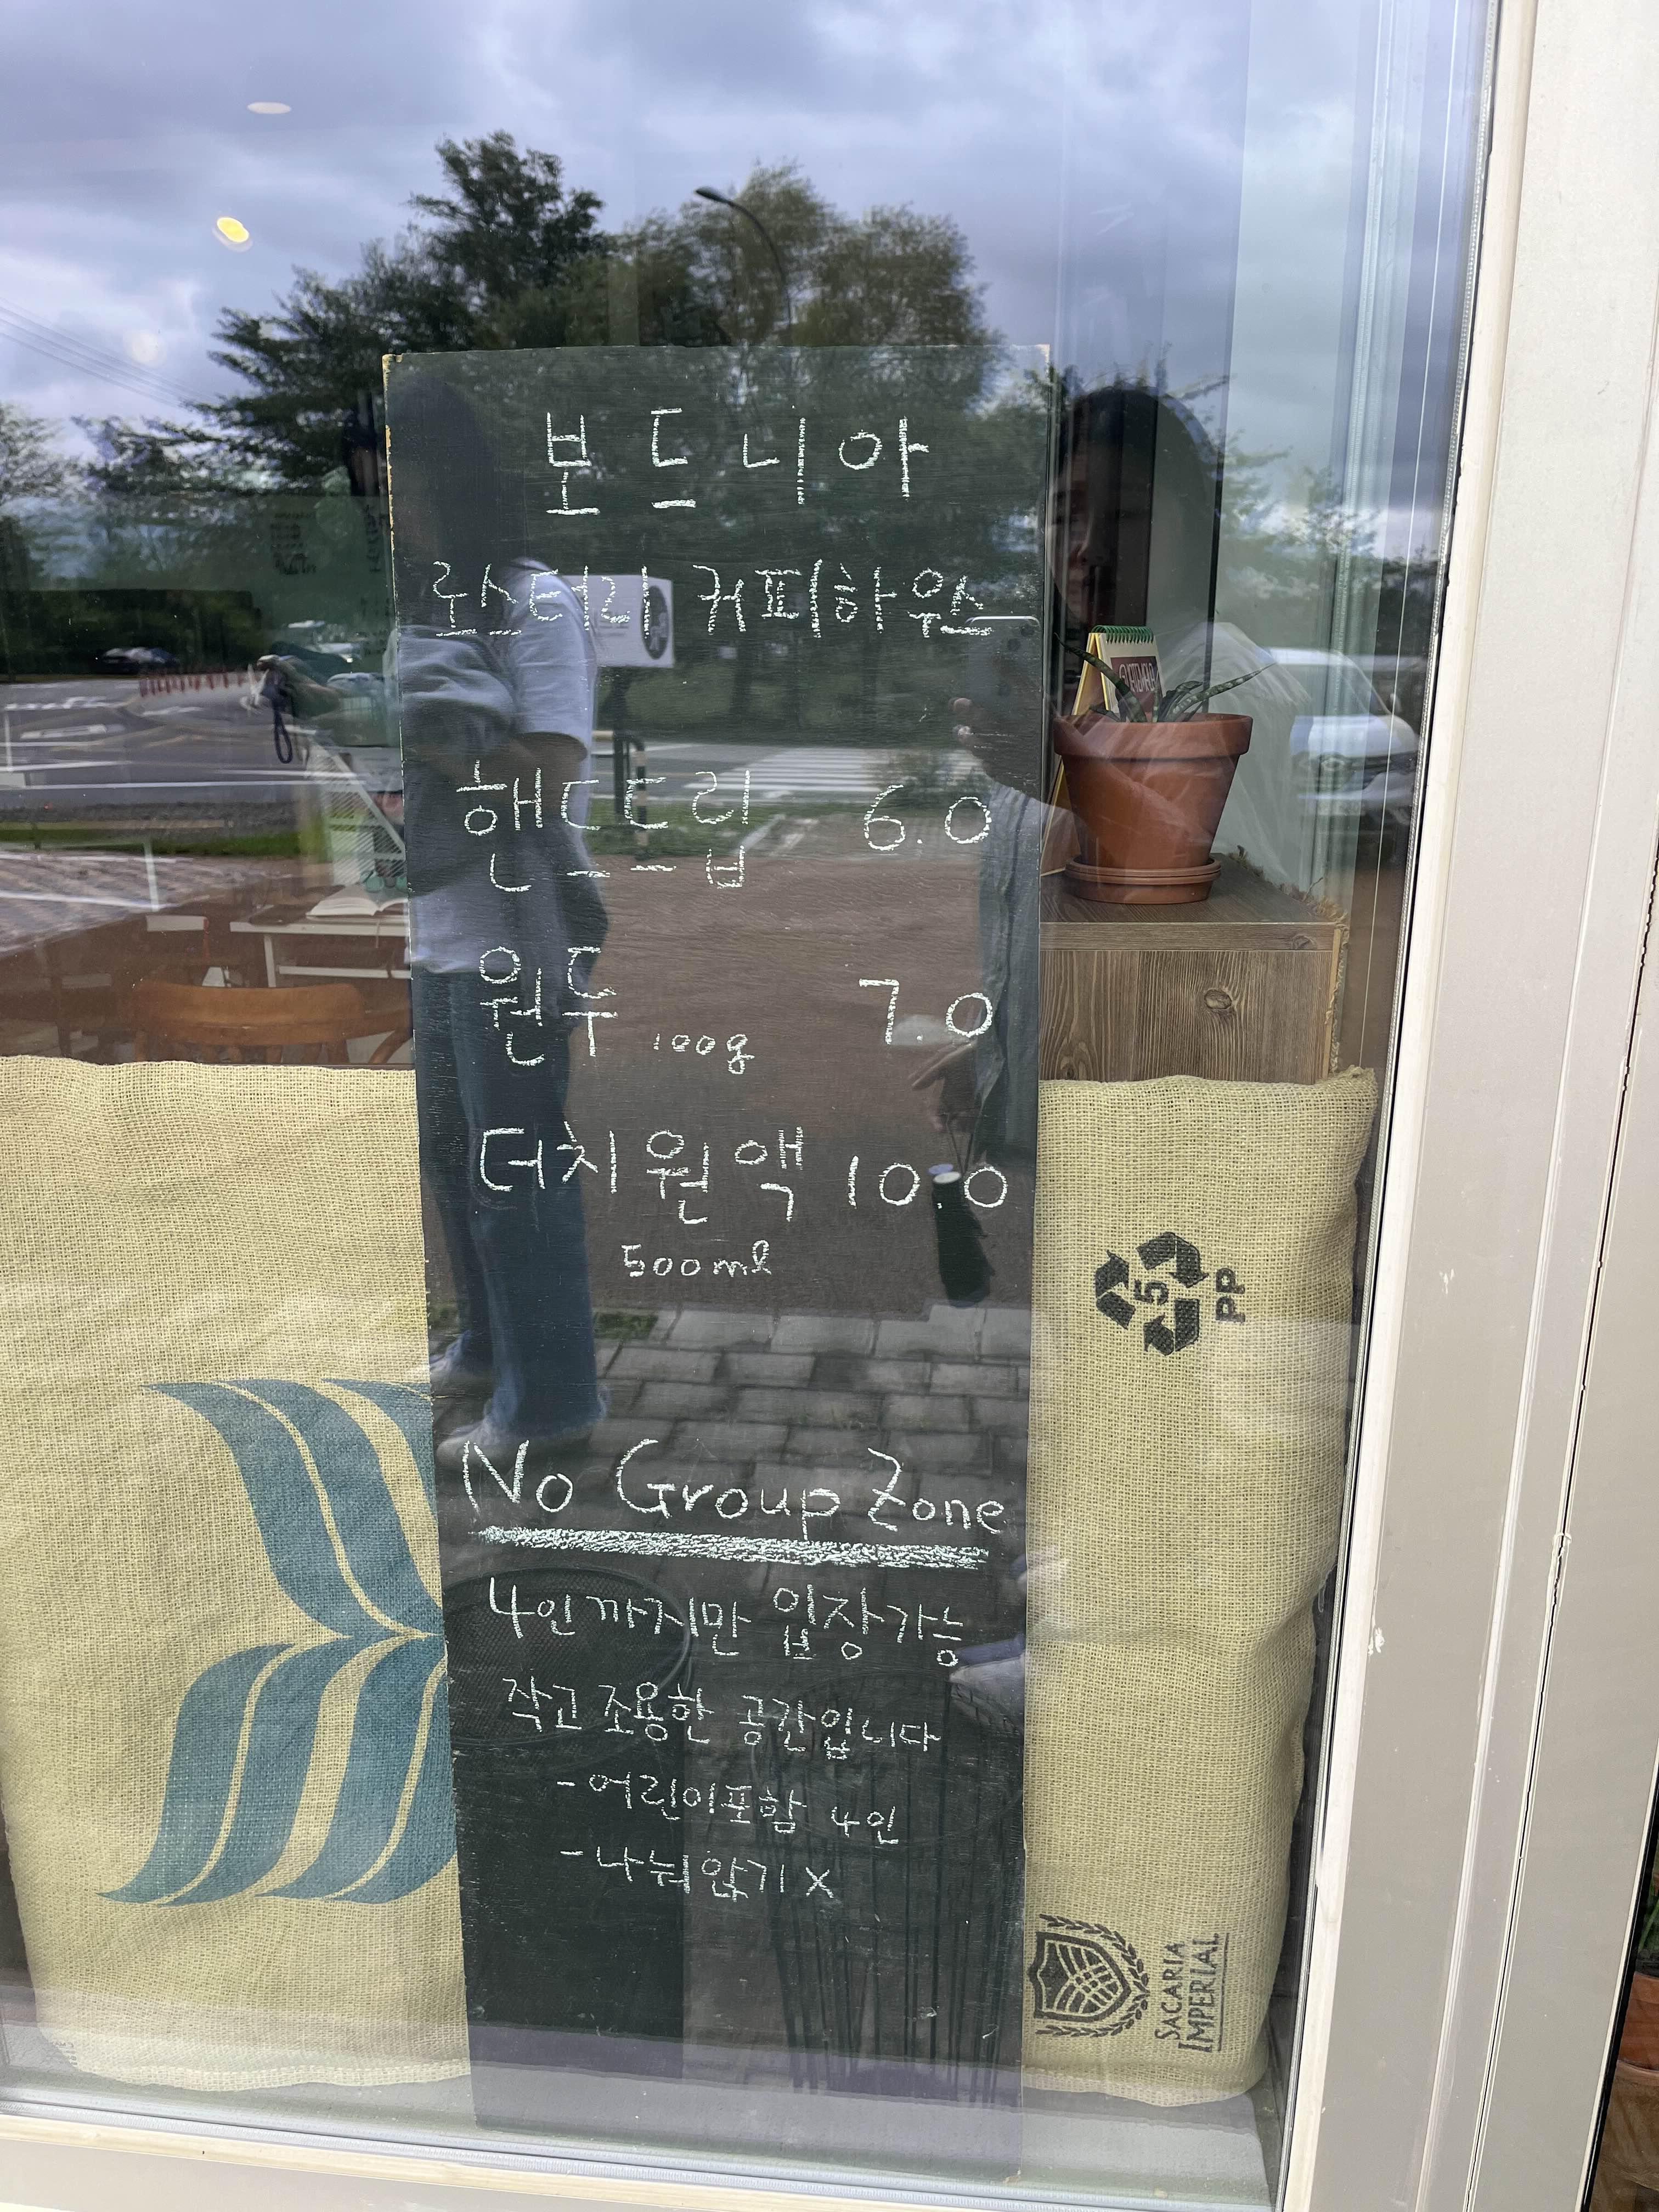 보드니아
로스터리 커피하우스
핸드드립 6.0
원두 100g 7.0
더치원액 10.0
500ml
No Group Zone
4인까지만 입장가능
작고 조용한 공간입니다
-어린이포함 4인
-나눠앉기 X
5
PP
SACARIA
IMPERIAL